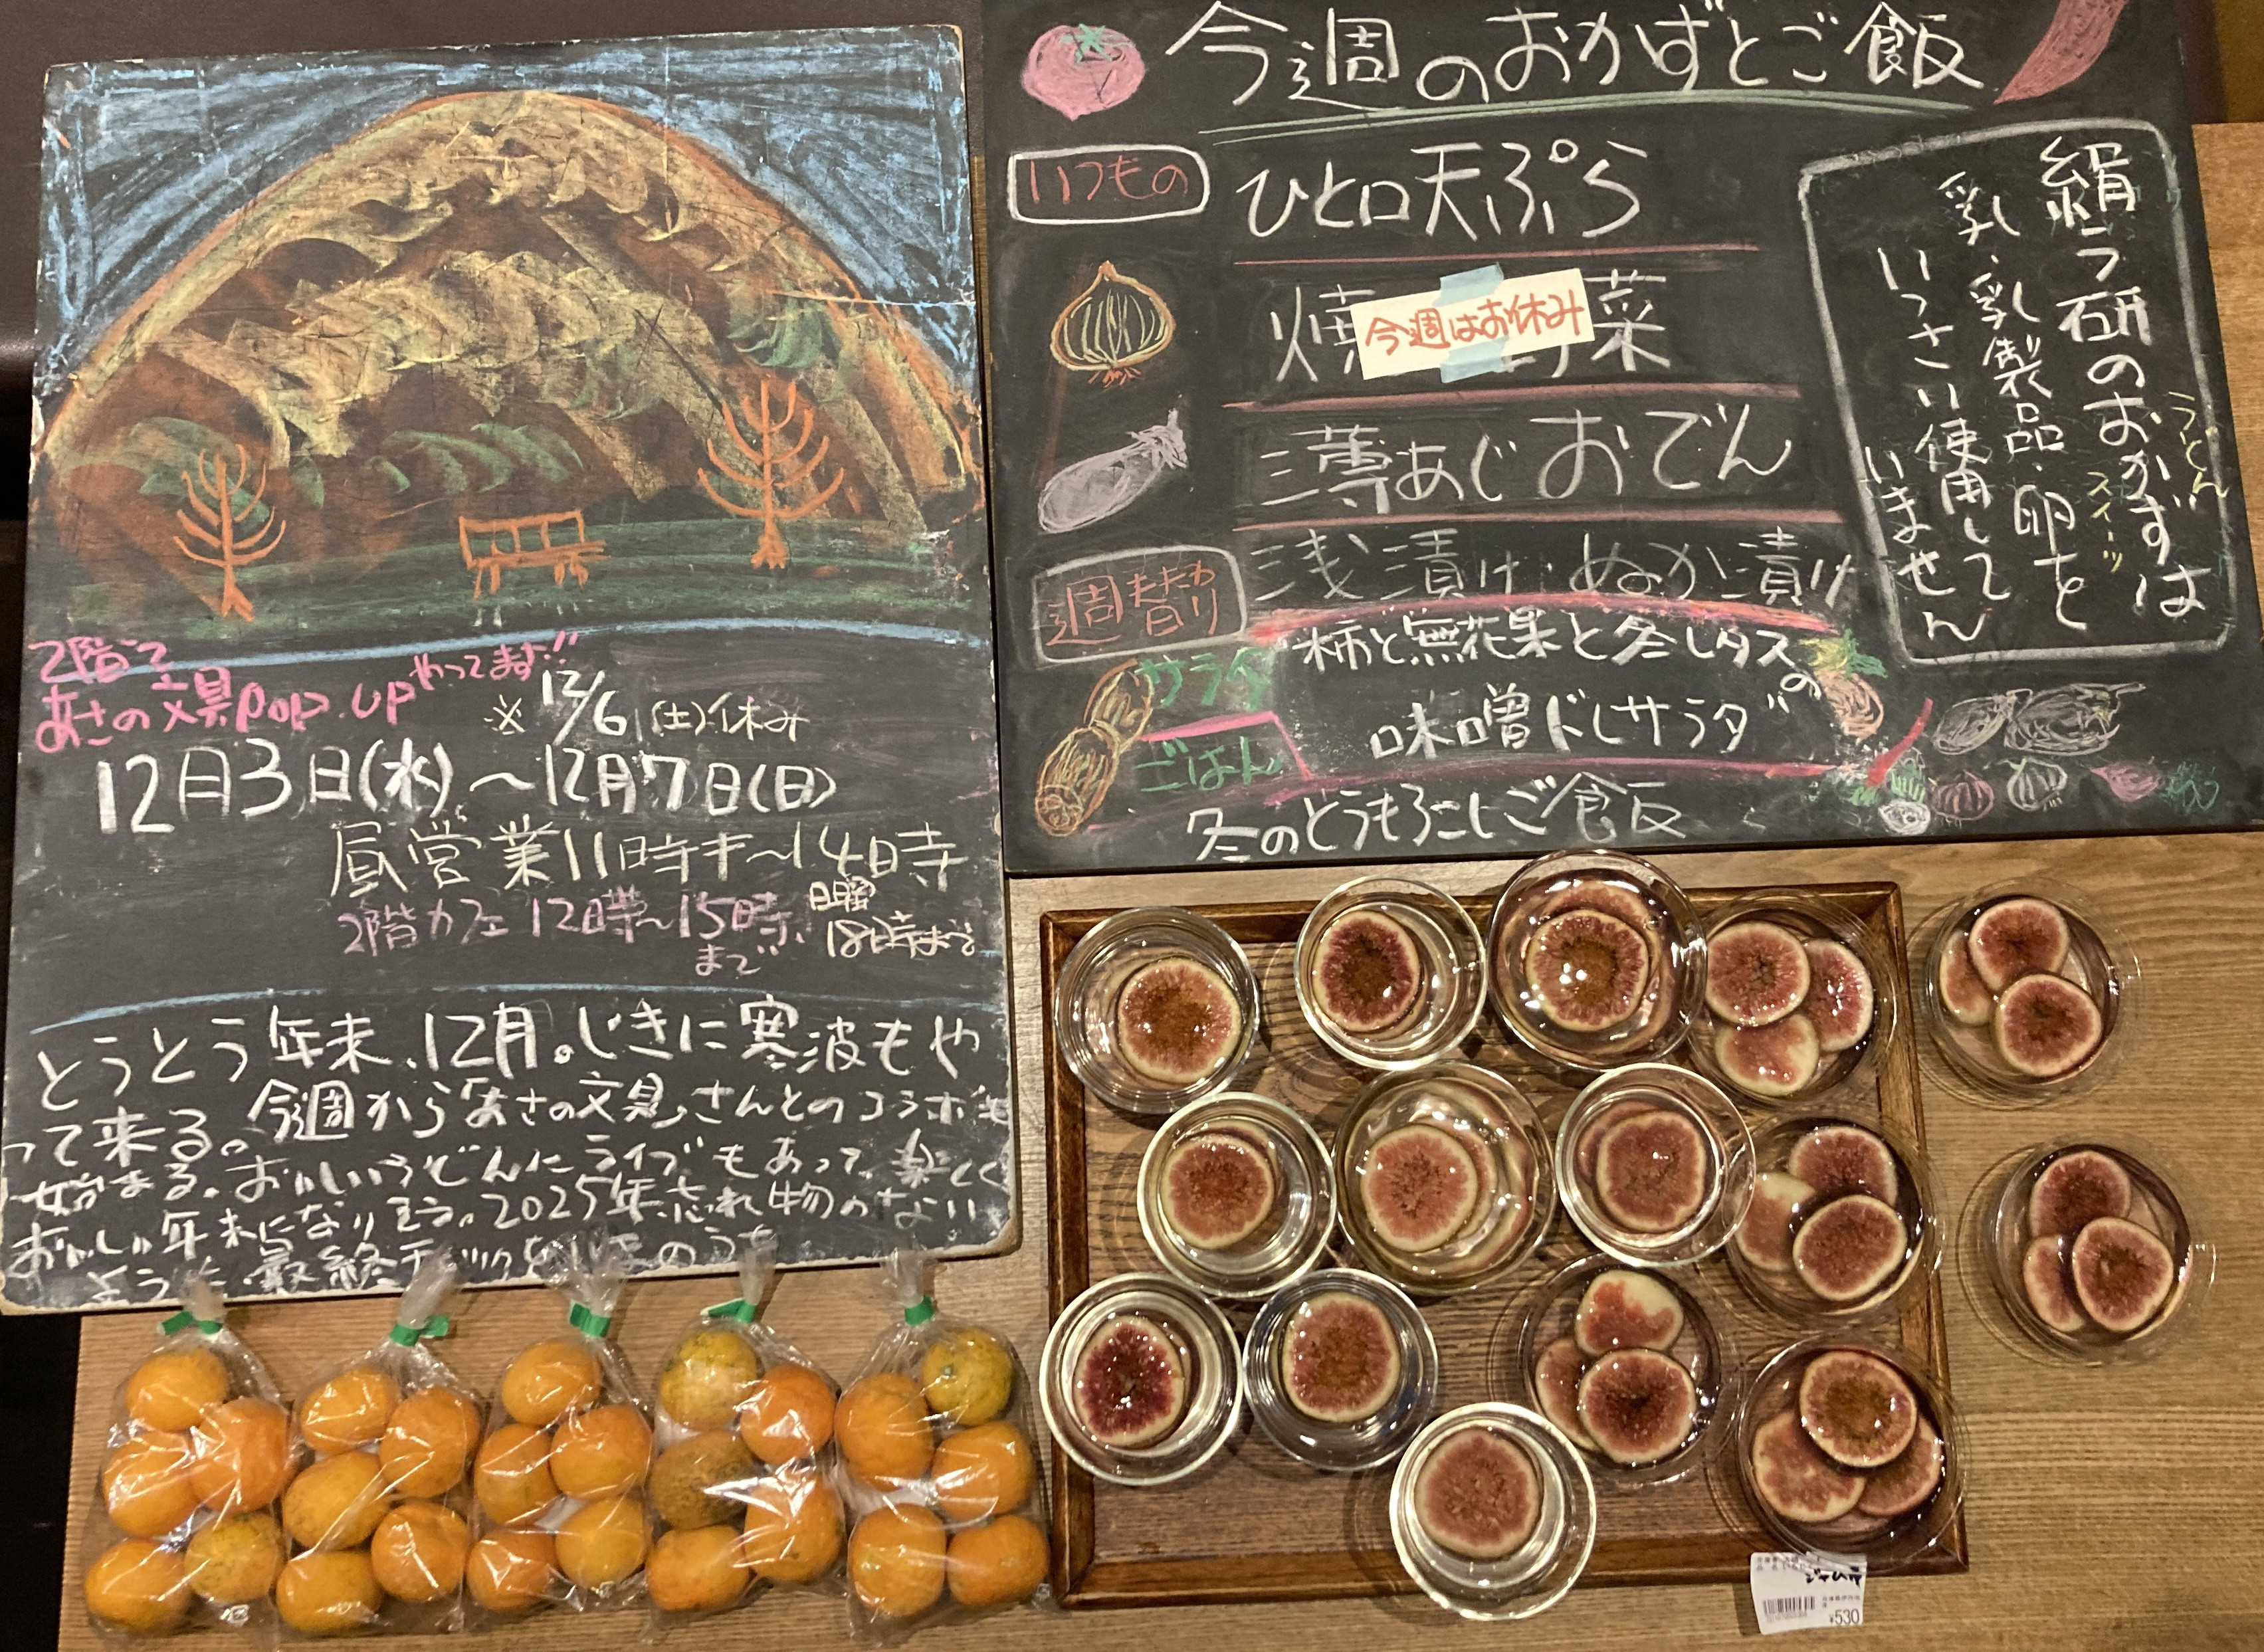 2階で
あさの文具POP.UPやってます!!
※12/6(土)休み
12月3日(水)～12月7日(日)
昼営業11時半～14時
2階カフェ12時半～15時まで
日曜18時まで
とうとう年末、12月。じきに寒波もや
って来る。今週からあさの文具さんとのコラボも
始まる。おいしいうどんにライブもあって、楽しく
おいしい年末になりそう。2025年忘れ物のない
ように最終チェックをいまのうち
今週のおかずとご飯
いつもの
ひと口天ぷら
焼 菜
今週はお休み
三薄あじおでん
浅漬け・ぬか漬け
週替り
サラダ
柿と無花果と冬レタスの
味噌ドレサラダ
ごはん
冬のとうもろこしご飯
絹う研のおかずは
うどん
スイーツ
乳・乳製品・卵を
いっさい使用して
いません
ジャム用
¥530